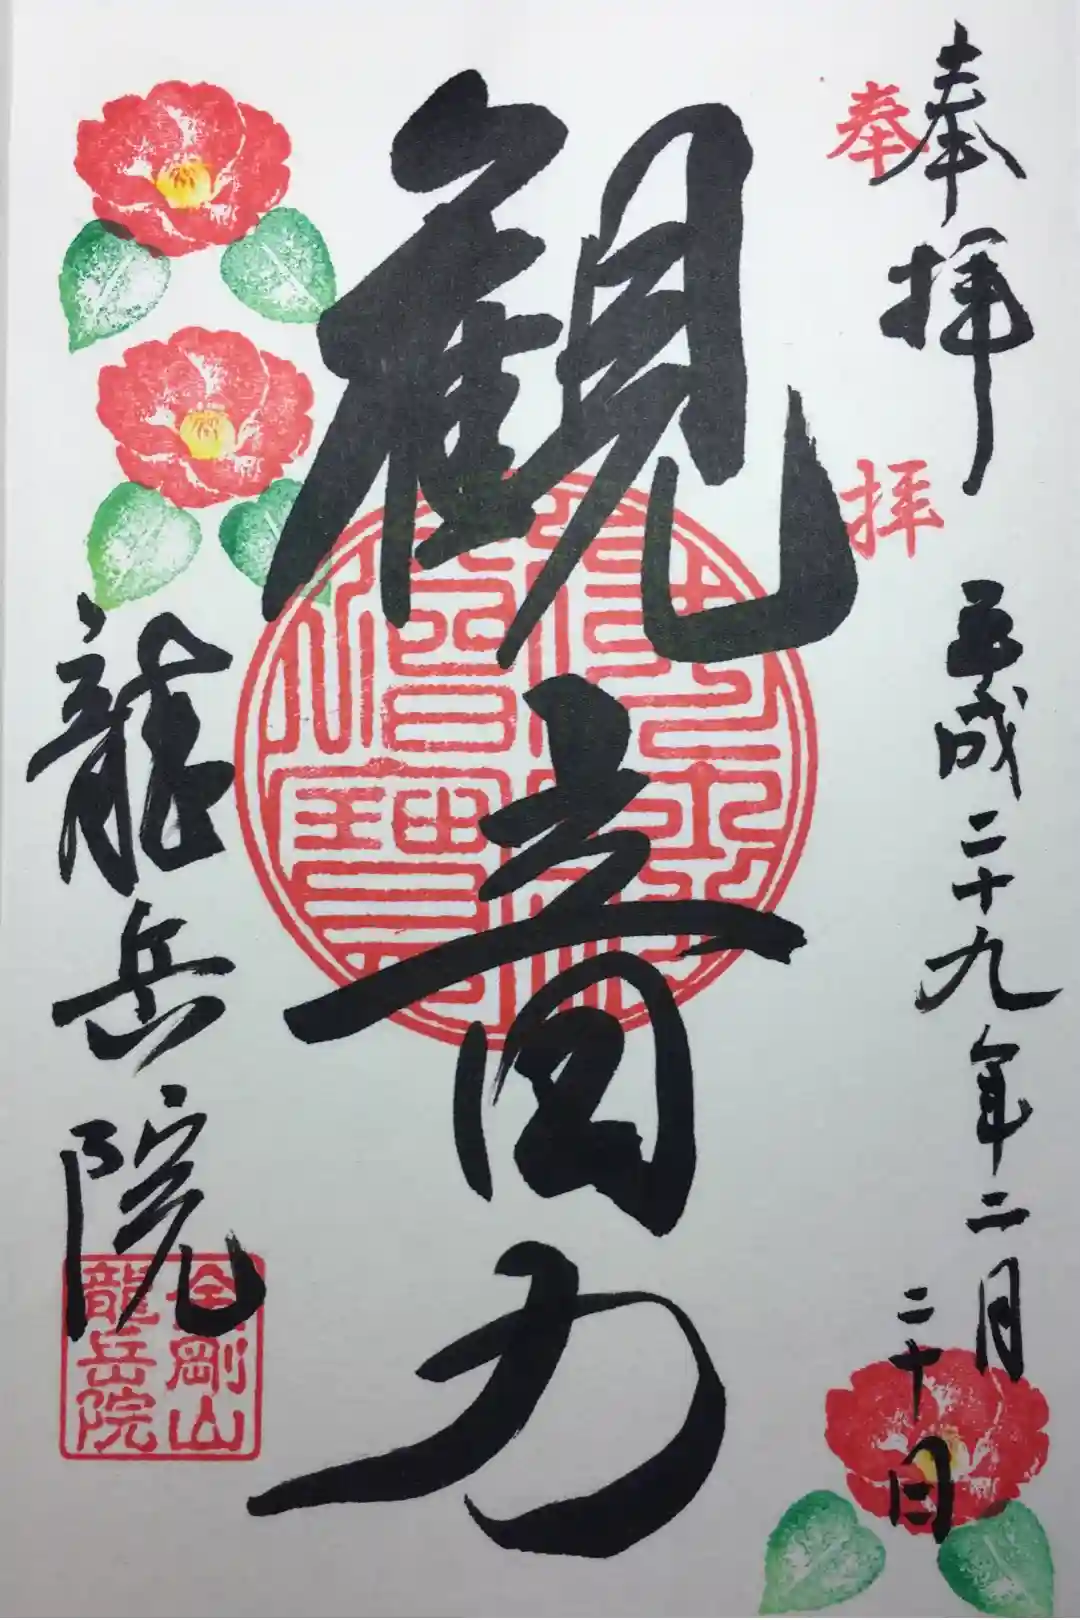 奉拝
奉拝
平成二十九年二月
二十日
観音力
龍岳院
金剛山
龍岳院